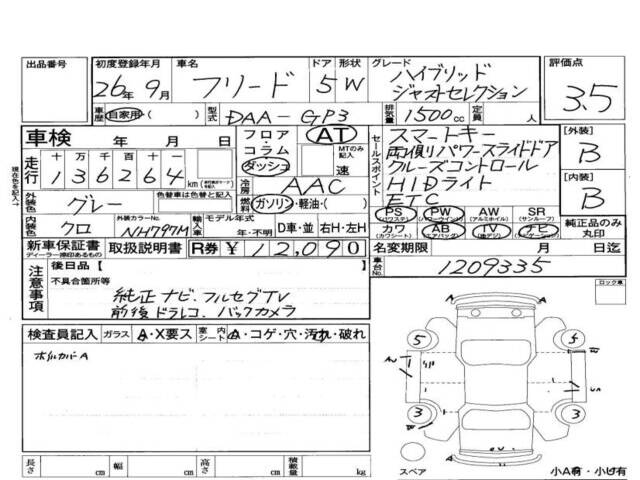 出品番号 初度登録年月 車名 ドア 形状 グレード 評価点
26年9月 フリード 5W ハイブリッド ジャストセレクション 3.5
車歴 自家用( ) 型式 DAA-GP3 排気量 1500cc 定員 人
車検 年 月 日 フロア AT コラム MTのみ記入 ダッシュ 速
走行 十 万 千 百 十 一
136264 km
冷房 AAC
外装色 グレー 色替車は色替と記入 燃料 ガソリン・軽油・( )
内装色 クロ 外装カラーNo. NH797M 輸入車 モデル年式 年・不明 D車・並 右H・左H
セールスポイント
スマートキー
両側パワースライドドア
クルーズコントロール
HIDライト
ETC
[外装] B
[内装] B
PS (パワステ) PW (パワーウインド) AW (アルミホイル) SR (サンルーフ)
カワ (カワシート) AB (エアバッグ) TV (地デジ) ナビ
純正品のみ丸印
新車保証書 ディーラー捺印あるもの 取扱説明書 R券 ¥12,090 名変期限 月 日迄
車台No. 1209335
注意事項
後日品【 】
不具合箇所等
純正ナビ.フルセグTV
前後ドラレコ.バックカメラ
ロック車
検査員記入 ガラス A・X要ス 室内シート A・コゲ・穴・汚れ・破れ
ホイルカバーA
5
3
3
スペア
小A有・小U有
長さ cm 幅 cm 高さ cm 積載量 kg